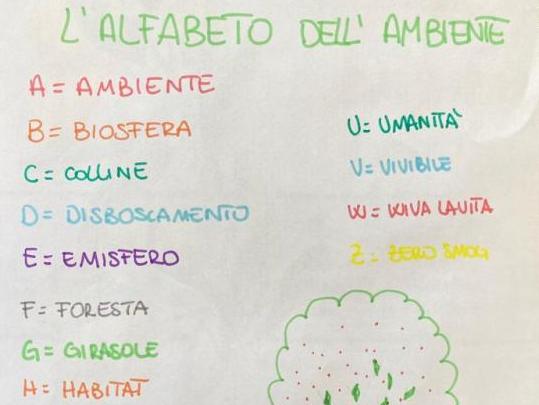 L'ALFABETO DELL' AMBIENTE
A = AMBIENTE
B = BIOSFERA
C = COLLINE
D = DISBOSCAMENTO
E = EMISFERO
F = FORESTA
G = GIRASOLE
H = HABITAT
U = UMANITÀ
V = VIVIBILE
W = WIVA LAVITA
Z = ZERO SMOG